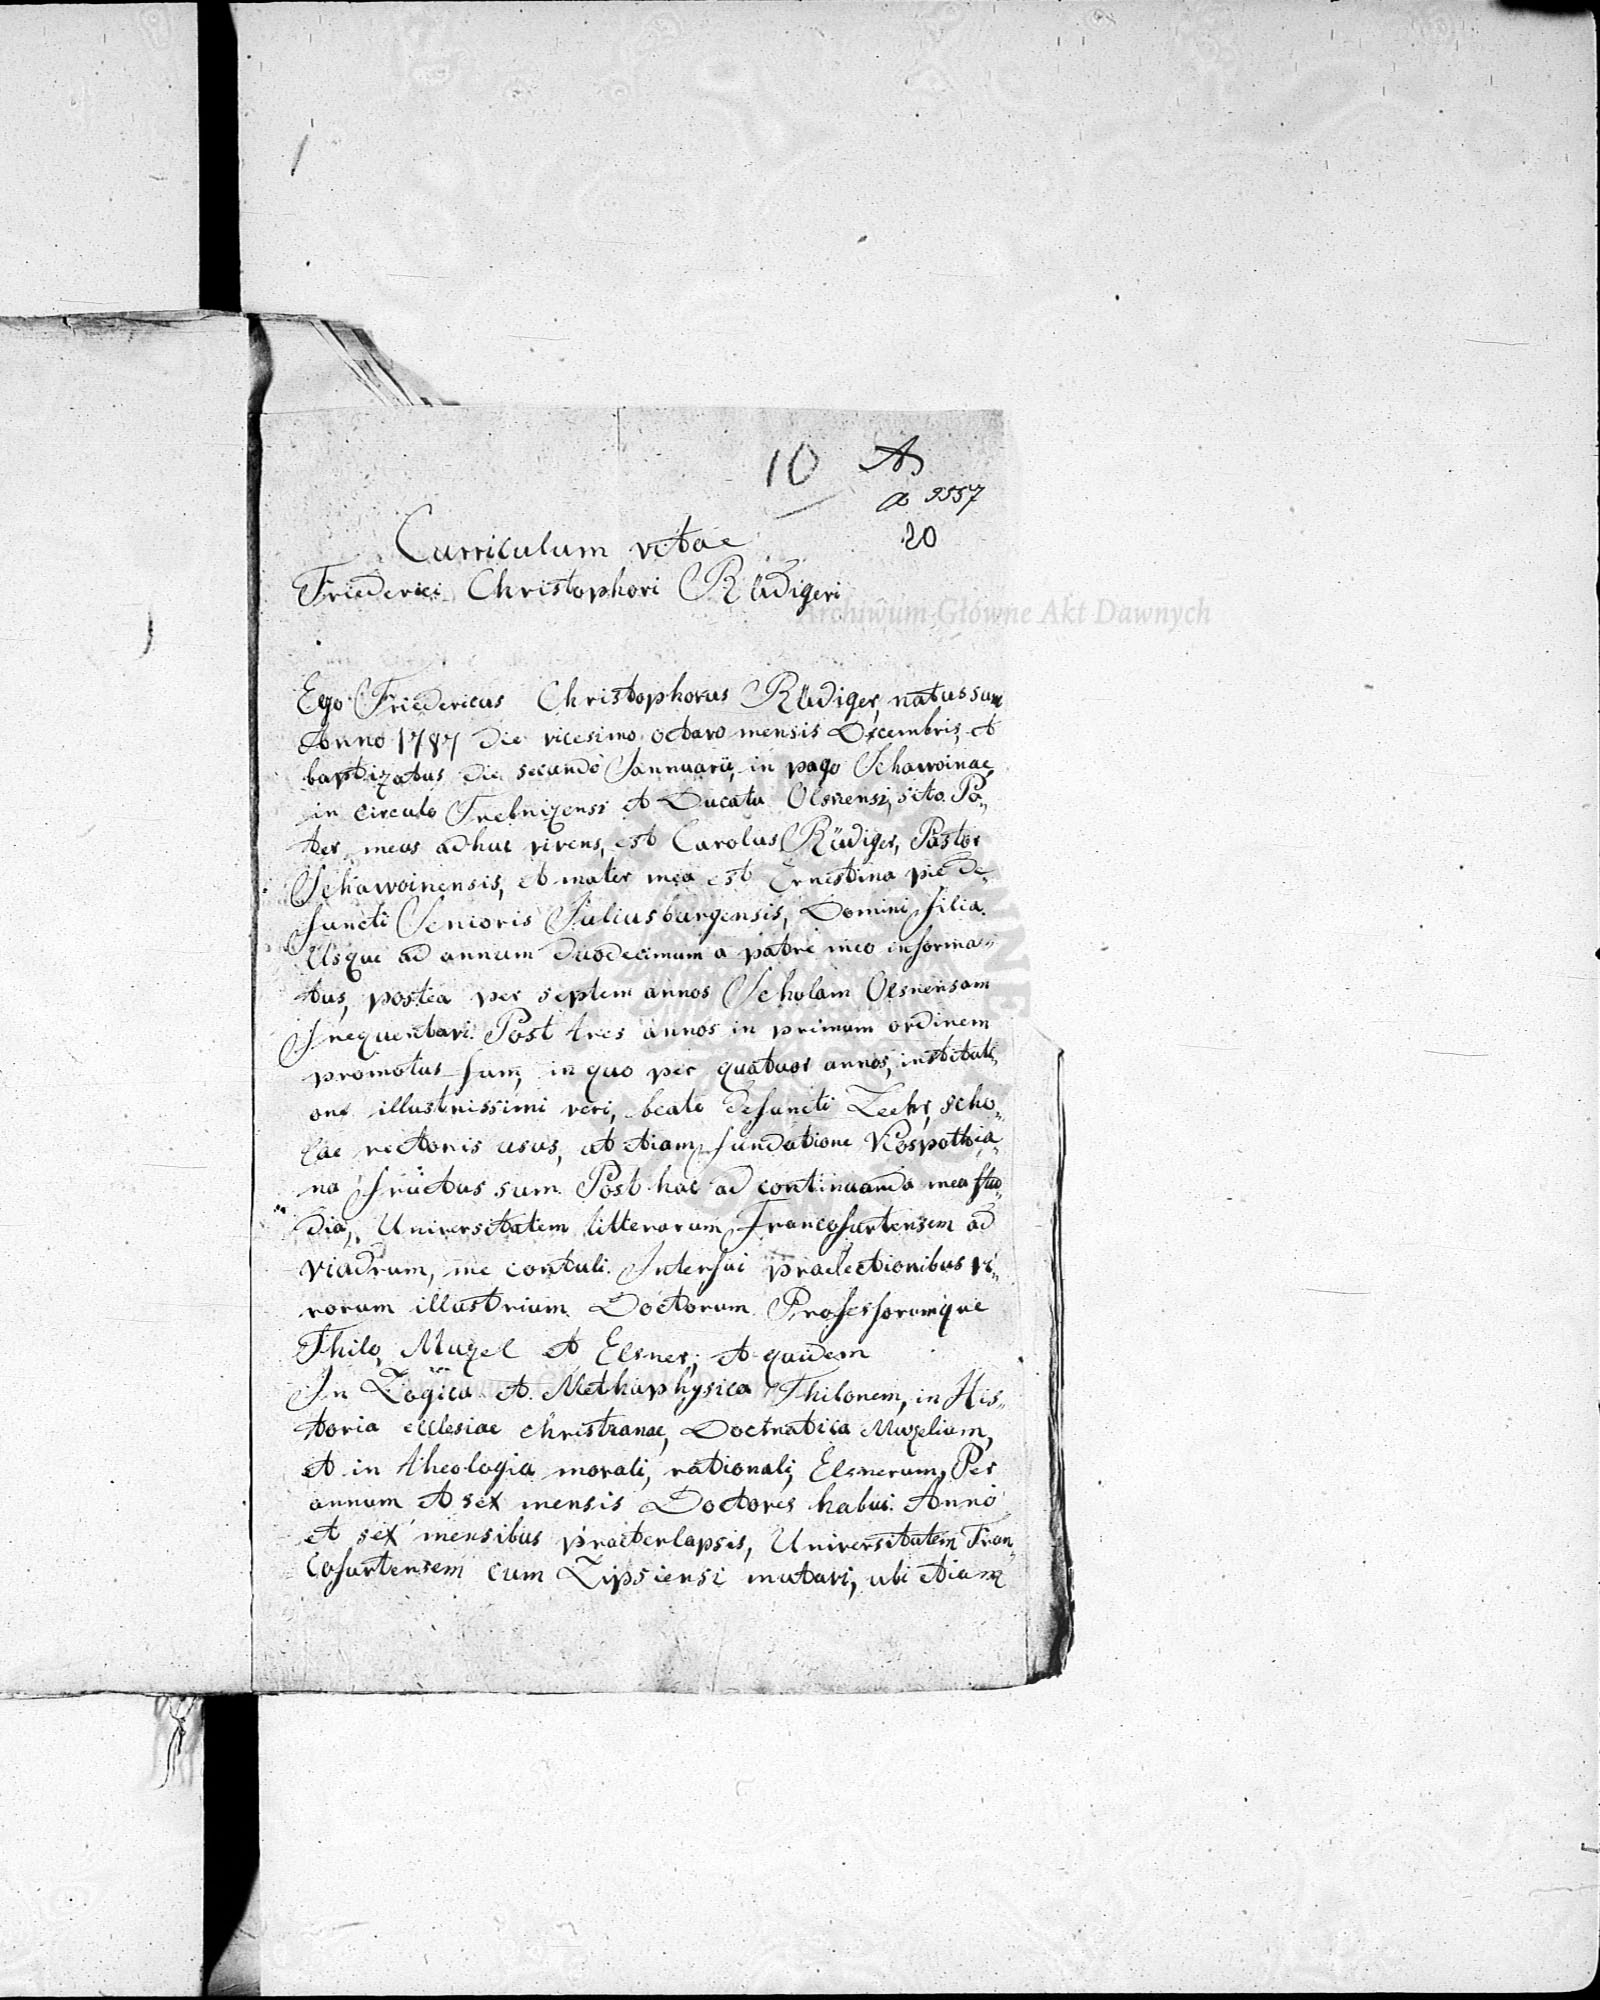 10 A
a 9557
20
Curriculum vitae
Friederici Christophori Rüdigeri
Archiwum Główne Akt Dawnych
Ego Friedericus Christophorus Rüdiger, natus sum
Anno 1787 die vicesimo octavo mensis Decembris, et
baptizatus die secundo Jannuarii, in pago Schawoinae,
in circulo Trebnizensi et Ducatu Olsnensi, sito. Pa„
ter meus adhuc vivens, est Carolus Rüdiger, Pastor
Schawoinensis, et mater mea est Ernestina pie de„
functi Senioris Juliusburgensis, Domini filia.
Usque ad annum duodecimum a patre meo informa„
tus, postea per septem annos Scholam Olsnensam
frequentavi. Post tres annos in primum ordinem
promotus sum, in quo per quatuor annos, instituti„
one illustrissimi veri, beate defuncti Zeehr, scho„
lae rectoris usus, at etiam fundatione Kospothia„
na fructus sum. Post hac ad continuanda mea stu„
dia, Universitatem litterarum Francofurtensem ad
Viadrum, me contuli. Interfui praelectionibus vi„
rorum illustrium Doctorum Professorumque
Thilo, Muzel et Elsner; et quidem
In Logica et Methaphysica Thilonem, in His„
toria ecclesiae christianae, Doctmatica Muzelium,
et in theologia morali, rationali, Elsnerum, Per
annum et sex mensis Doctores habui. Anno
et sex mensibus praeterlapsis, Universitatem Fran„
cofurtensem cum Lipsiensi mutavi, ubi etiam